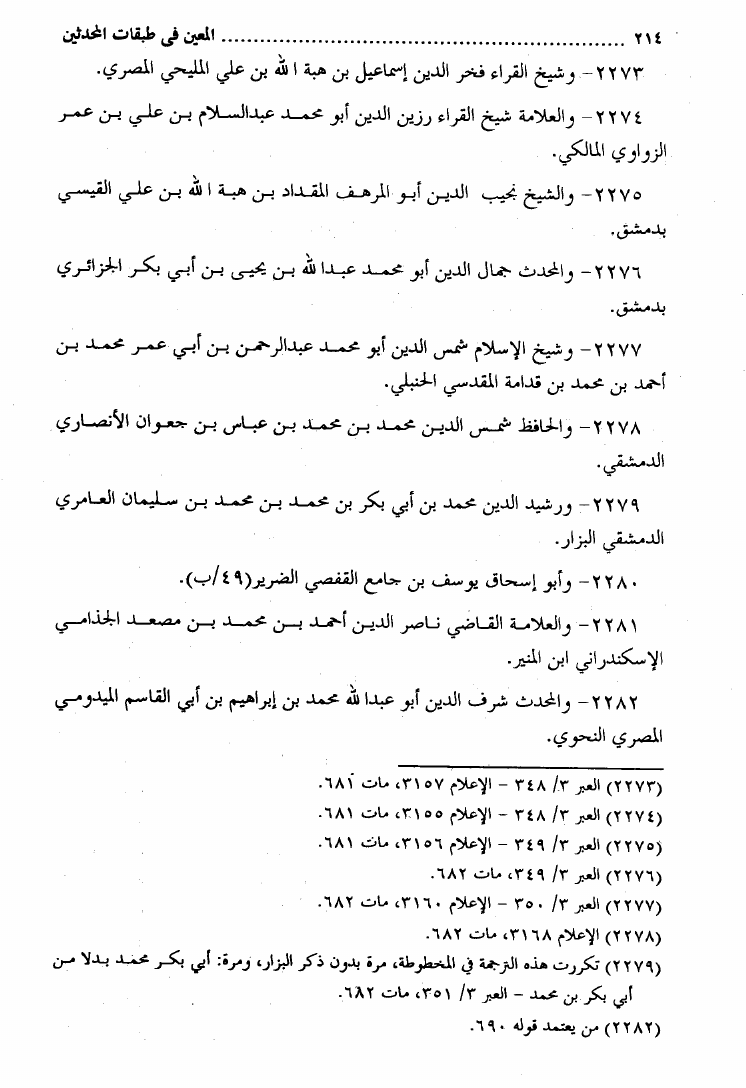 ٢١٤ ................................................................ المعين في طبقات المحدثين
٢٢٧٣- وشيخ القراء فخر الدين إسماعيل بن هبة الله بن علي المليحي المصري.
٢٢٧٤- والعلامة شيخ القراء رزين الدين أبو محمد عبدالسلام بن علي بن عمر
الزواوي المالكي.
٢٢٧٥- والشيخ نجيب الدين أبو المرهف المقداد بن هبة الله بن علي القيسي
بدمشق.
٢٢٧٦- والمحدث جمال الدين أبو محمد عبدالله بن يحيى بن أبي بكر الجزائري
بدمشق.
٢٢٧٧- وشيخ الإسلام شمس الدين أبو محمد عبدالرحمن بن أبي عمر محمد بن
أحمد بن محمد بن قدامة المقدسي الحنبلي.
٢٢٧٨- والحافظ شمس الدين محمد بن محمد بن عباس بن جعوان الأنصاري
الدمشقي.
٢٢٧٩- ورشيد الدين محمد بن أبي بكر بن محمد بن محمد بن سليمان العامري
الدمشقي البزار.
٢٢٨٠- وأبو إسحاق يوسف بن جامع القفصي الضرير(٤٩/ب).
٢٢٨١- والعلامة القاضي ناصر الدين أحمد بن محمد بن مصعد الجذامي
الإسكندراني ابن المنير.
٢٢٨٢- والمحدث شرف الدين أبو عبدالله محمد بن إبراهيم بن أبي القاسم الميدومي
المصري النحوي.
(٢٢٧٣) العبر ٣/ ٣٤٨ - الإعلام ٣١٥٧، مات ٦٨١.
(٢٢٧٤) العبر ٣/ ٣٤٨ - الإعلام ٣١٥٥، مات ٦٨١.
(٢٢٧٥) العبر ٣/ ٣٤٩ - الإعلام ٣١٥٦، مات ٦٨١.
(٢٢٧٦) العبر ٣/ ٣٤٩، مات ٦٨٢.
(٢٢٧٧) العبر ٣/ ٣٥٠ - الإعلام ٣١٦٠، مات ٦٨٢.
(٢٢٧٨) الإعلام ٣١٦٨، مات ٦٨٢.
(٢٢٧٩) تكررت هذه الترجمة في المخطوطة، مرة بدون ذكر البزار، ومرة: أبي بكر محمد بدلا من
أبي بكر بن محمد - العبر ٣/ ٣٥١، مات ٦٨٢.
(٢٢٨٢) من يعتمد قوله ٦٩٠.